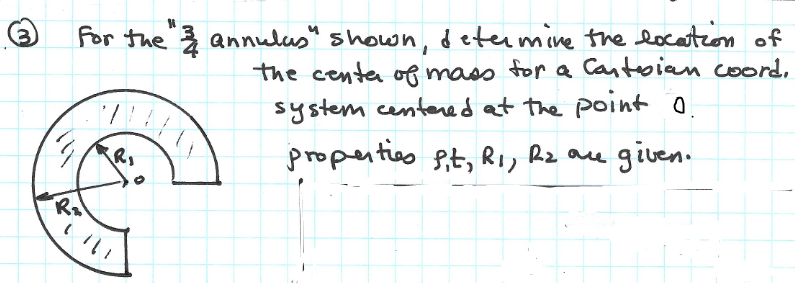 ③ For the "3/4 annulus" shown, determine the location of
the center of mass for a Cartesian coord.
system centered at the point O.
properties ρ,t, R1, R2 are given.
R1
O
R2